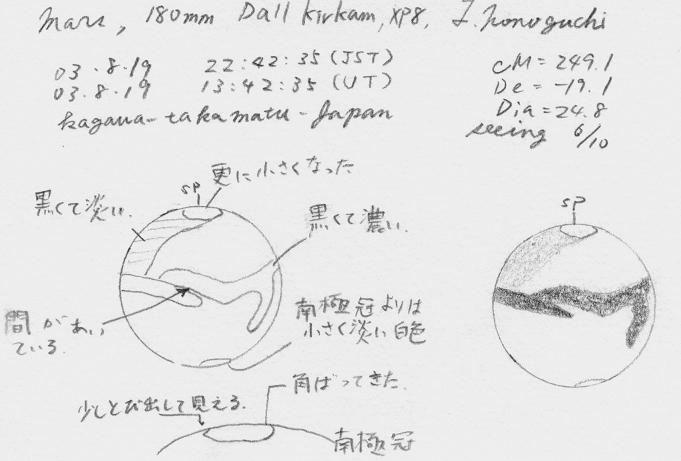 Mars, 180mm Dall Kirkam, XP8, I. konoguchi
03.8.19 22:42:35 (JST)
03.8.19 13:42:35 (UT)
kagawa-takamatu-Japan
CM=249.1
De=-19.1
Dia=24.8
seeing 6/10
SP
更に小さくなった
黒くて淡い.
黒くて濃い.
SP
間があい
ている.
南極冠よりは
小さく淡い白色
角ばってきた.
少しとび出して見える.
南極冠